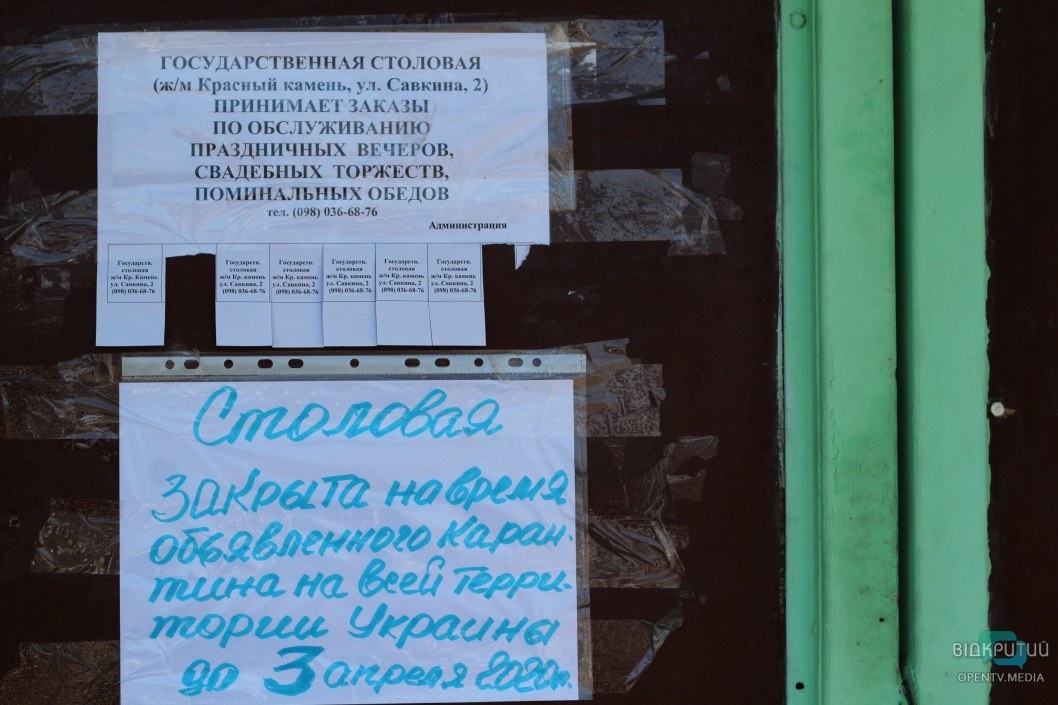 ГОСУДАРСТВЕННАЯ СТОЛОВАЯ
(ж/м Красный камень, ул. Савкина, 2)
ПРИНИМАЕТ ЗАКАЗЫ
ПО ОБСЛУЖИВАНИЮ
ПРАЗДНИЧНЫХ ВЕЧЕРОВ,
СВАДЕБНЫХ ТОРЖЕСТВ,
ПОМИНАЛЬНЫХ ОБЕДОВ
тел. (098) 036-68-76
Администрация
Государств.
столовая
ж/м Кр. Камень
ул. Савкина, 2
(098) 036-68-76
Государств.
столовая
ж/м Кр. камень
ул. Савкина, 2
(098) 036-68-76
Государств.
столовая
ж/м Кр. камень
ул. Савкина, 2
(098) 036-68-76
Государств.
столовая
ж/м Кр. камень
ул. Савкина, 2
(098) 036-68-76
Государств.
столовая
ж/м Кр. камень
ул. Савкина, 2
(098) 036-68-76
Государств.
столовая
ж/м Кр. камень
ул. Савкина, 2
(098) 036-68-76
Столовая
закрыта на время
объявленного каран-
тина на всей терри-
тории Украины
до 3 апреля 2020г.
ВІДКРИТИЙ
OPENTV.MEDIA